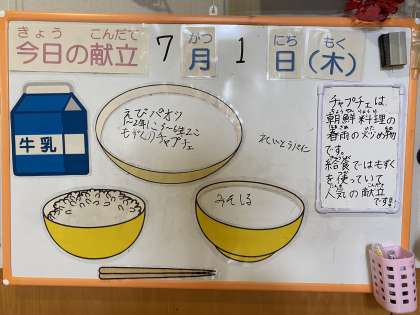 きょう こんだて
今日の献立
7
がつ
月
1
にち
日
もく
(木)
牛乳
えびパオツ
1〜2年1こ 3〜6年2こ
もずく入りチャプチェ
れいとうみかん
みそしる
チャプチェは
朝鮮料理の
春雨の炒め物
です。
給食ではもずく
を使っていて
人気の献立
です!!